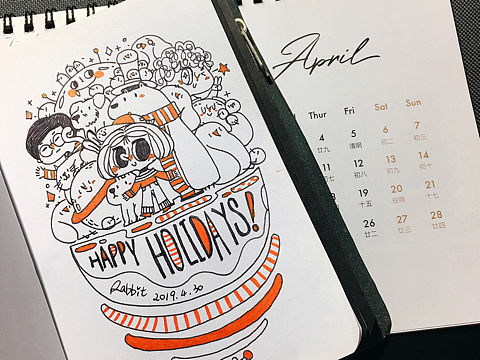 HAPPY HOLIDAYS!
Rabbit 2019.4.30
April
Thur Fri Sat Sun
4 5 6 7
廿九 清明 初二 初三
11 12 13 14
初七 初八 初九 初十
18 19 20 21
十五 谷雨 十七
25 26 27 28
廿二 廿三 廿四